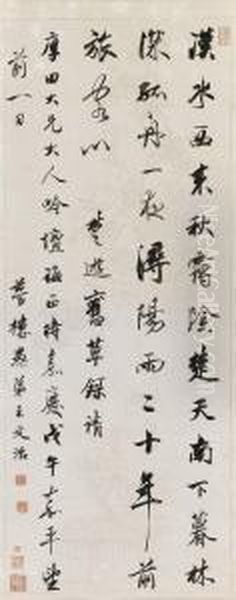 漢水西來秋陰楚天南下暮林
深孤舟一夜潯陽雨二十年前
旅客心 楚遊舊草錄請
田大兄大人吟壇誨正時嘉慶戊午嘉平望
前一日 夢樓愚弟王文治